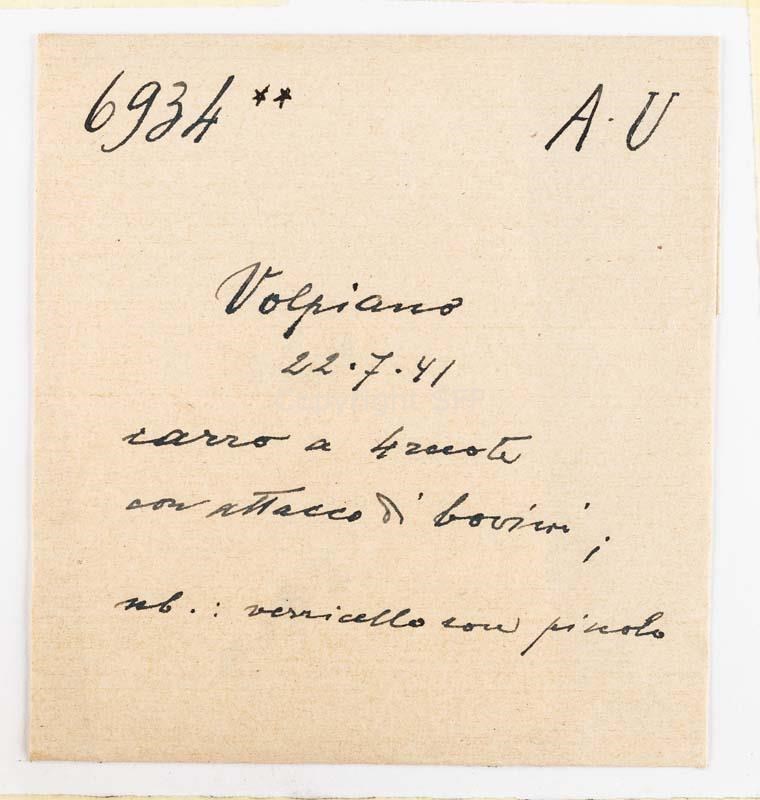 6934 ** A.U
Volpiano
22.7.41
carro a 4 ruote
con attacco di bovini;
nb.: verricello con piuolo